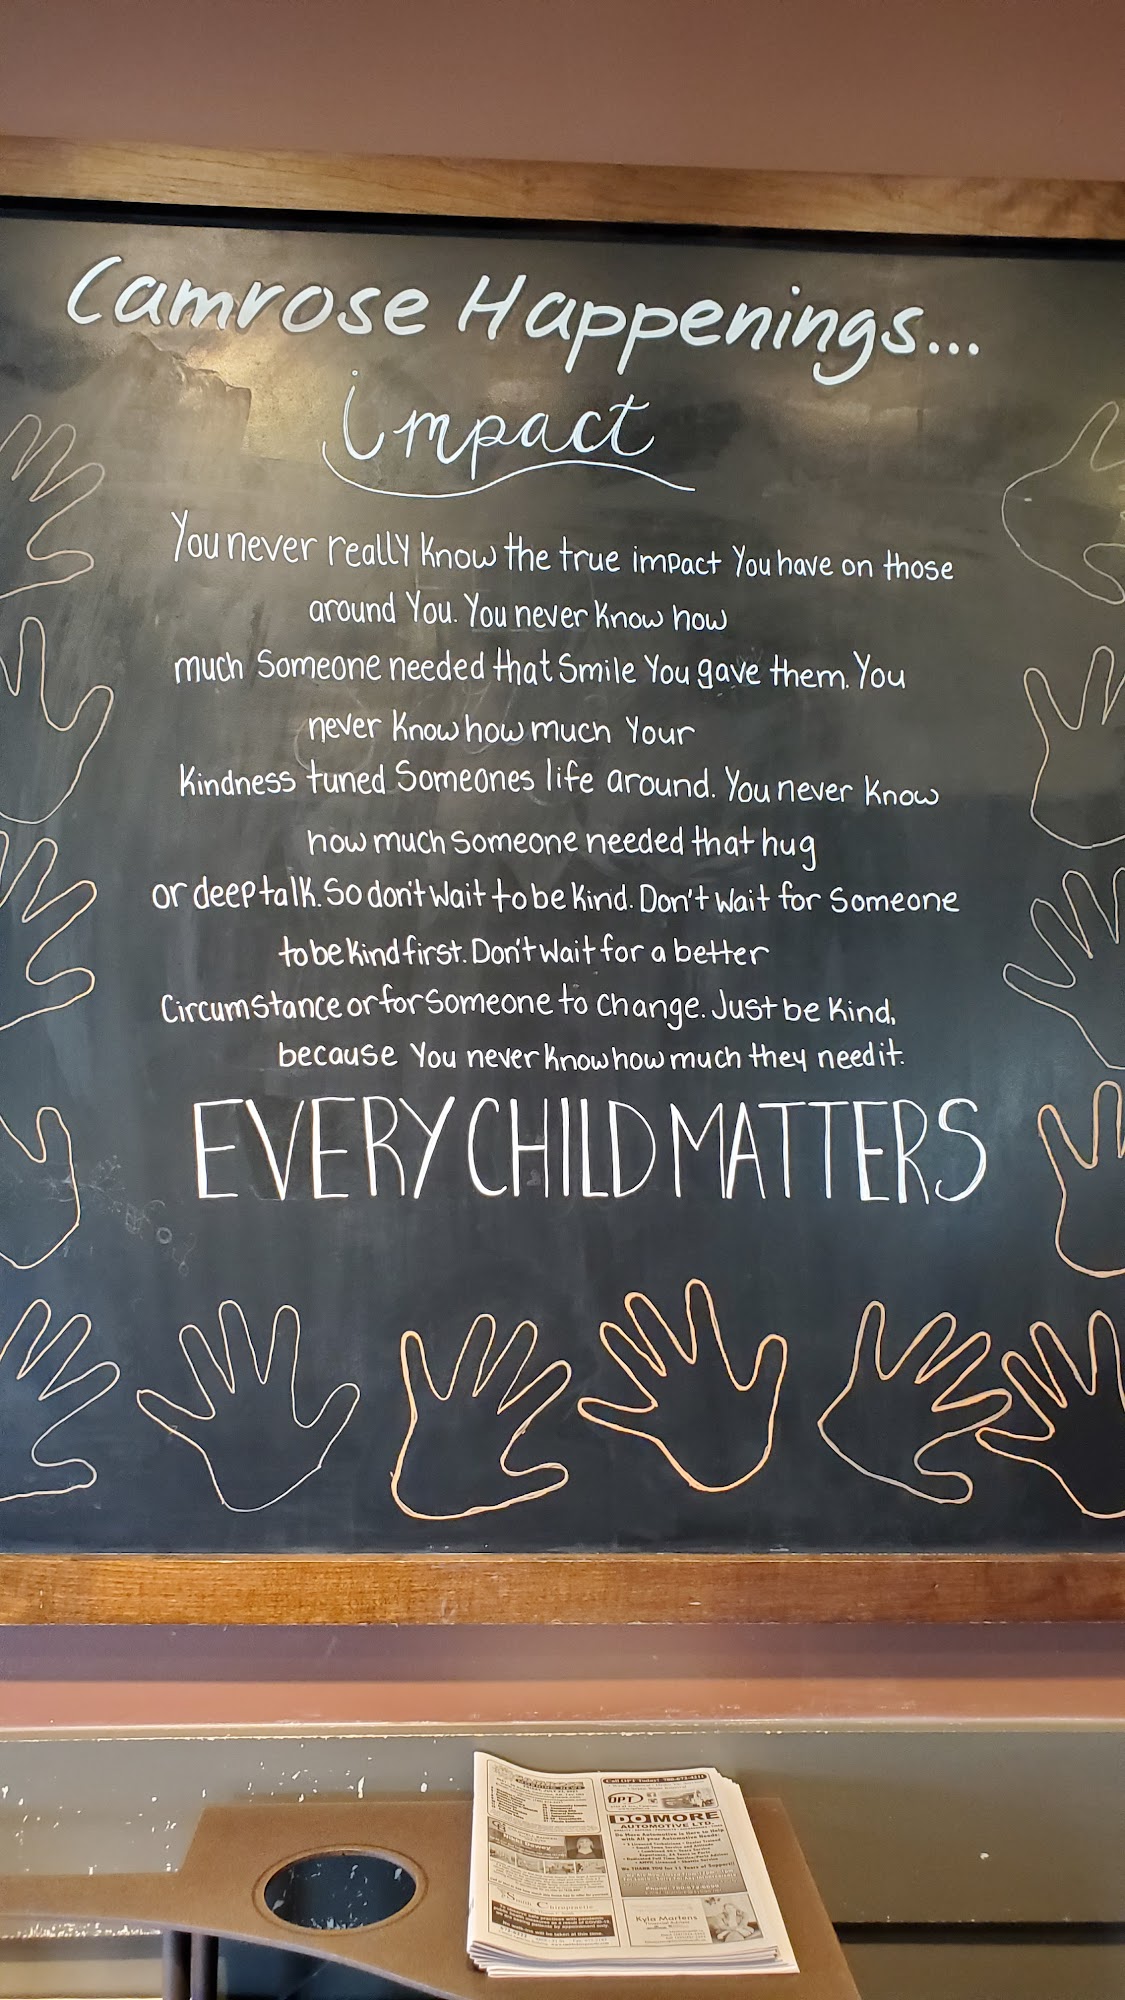 Camrose Happenings...
impact
You never really know the true impact you have on those
around you. You never know how
much someone needed that smile you gave them. You
never know how much your
kindness tuned someones life around. You never know
how much someone needed that hug
or deep talk. So don't wait to be kind. Don't wait for someone
to be kind first. Don't wait for a better
circumstance or for someone to change. Just be kind,
because you never know how much they need it.
EVERY CHILD MATTERS
Call OPT Today!
OPT
DO MORE
AUTOMOTIVE LTD.
Do More Automotive is Here to Help
with All your Automotive Needs:
Smith Chiropractic
Kyla Martens